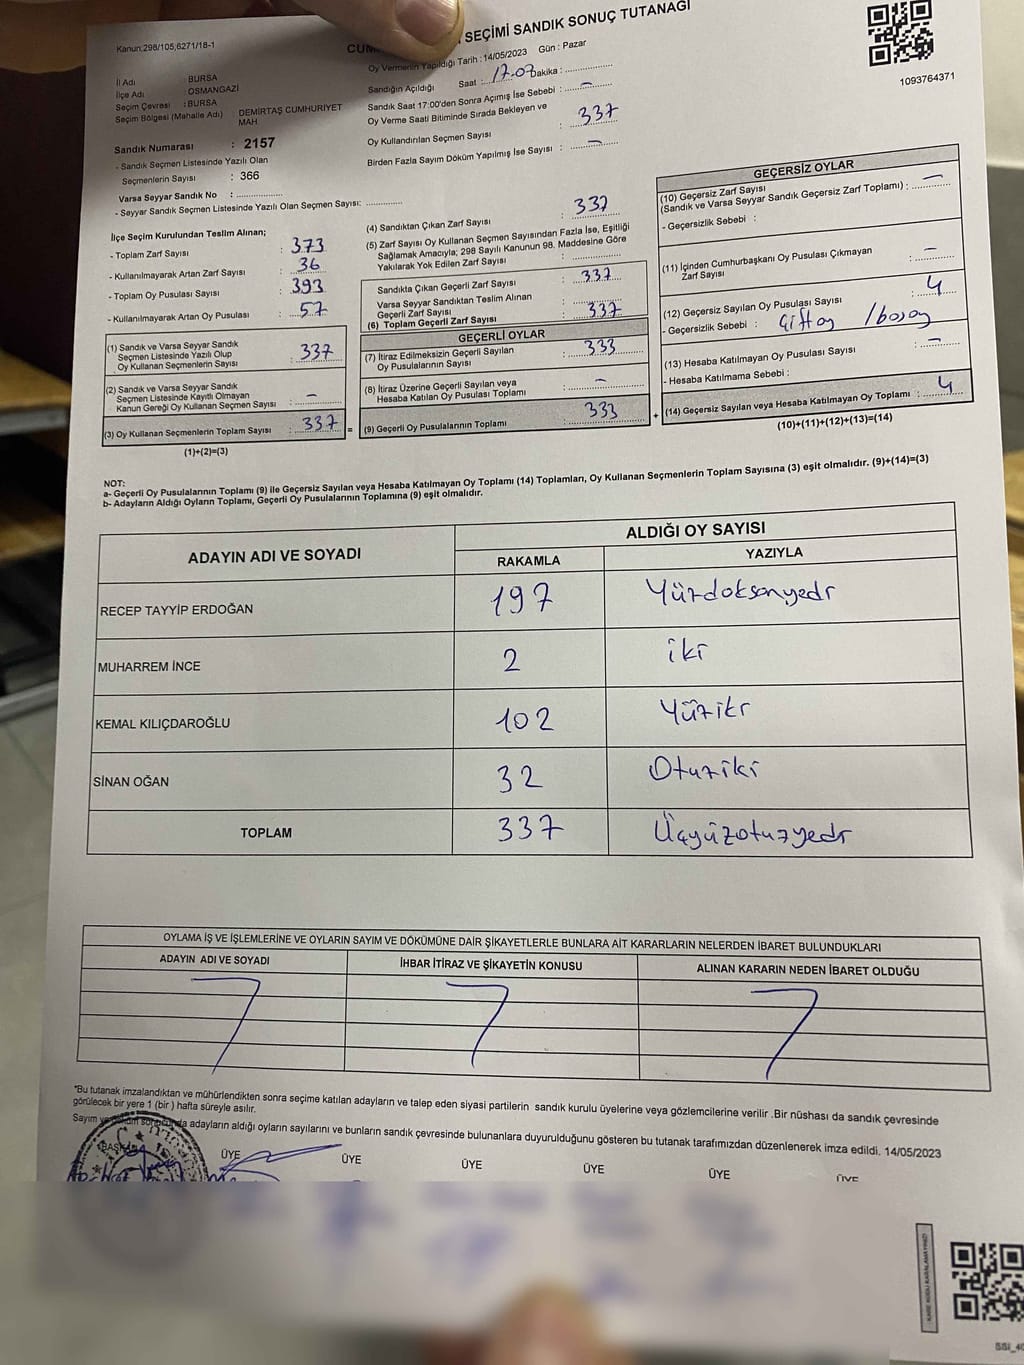 Kanun;298/105;6271/18-1
SEÇİMİ SANDIK SONUÇ TUTANAĞI
Oy Vermenin Yapıldığı Tarih : 14/05/2023 Gün : Pazar
1093764371
İl Adı : BURSA
İlçe Adı : OSMANGAZİ
Seçim Çevresi : BURSA
Seçim Bölgesi (Mahalle Adı) DEMİRTAŞ CUMHURİYET MAH
Sandık Numarası : 2157
- Sandık Seçmen Listesinde Yazılı Olan
Seçmenlerin Sayısı : 366
Varsa Seyyar Sandık No :
- Seyyar Sandık Seçmen Listesinde Yazılı Olan Seçmen Sayısı:
Sandığın Açıldığı Saat : 17.07 Dakika :
Sandık Saat 17:00'den Sonra Açımış İse Sebebi : -
Oy Verme Saati Bitiminde Sırada Bekleyen ve
Oy Kullandırılan Seçmen Sayısı : 337
Birden Fazla Sayım Döküm Yapılmış İse Sayısı : -
İlçe Seçim Kurulundan Teslim Alınan;
- Toplam Zarf Sayısı : 373
- Kullanılmayarak Artan Zarf Sayısı : 36
- Toplam Oy Pusulası Sayısı : 393
- Kullanılmayarak Artan Oy Pusulası : 57
(1) Sandık ve Varsa Seyyar Sandık
Seçmen Listesinde Yazılı Olup
Oy Kullanan Seçmenlerin Sayısı : 337
(2) Sandık ve Varsa Seyyar Sandık
Seçmen Listesinde Kayıtlı Olmayan
Kanun Gereği Oy Kullanan Seçmen Sayısı : -
(3) Oy Kullanan Seçmenlerin Toplam Sayısı : 337 =
(1)+(2)=(3)
(4) Sandıktan Çıkan Zarf Sayısı : 337
(5) Zarf Sayısı Oy Kullanan Seçmen Sayısından Fazla İse, Eşitliği
Sağlamak Amacıyla; 298 Sayılı Kanunun 98. Maddesine Göre
Yakılarak Yok Edilen Zarf Sayısı :
Sandıkta Çıkan Geçerli Zarf Sayısı : 337
Varsa Seyyar Sandıktan Teslim Alınan
Geçerli Zarf Sayısı :
(6) Toplam Geçerli Zarf Sayısı : 337
GEÇERLİ OYLAR
(7) İtiraz Edilmeksizin Geçerli Sayılan
Oy Pusulalarının Sayısı : 333
(8) İtiraz Üzerine Geçerli Sayılan veya
Hesaba Katılan Oy Pusulası Toplamı : -
(9) Geçerli Oy Pusulalarının Toplamı : 333 +
GEÇERSİZ OYLAR
(10) Geçersiz Zarf Sayısı
(Sandık ve Varsa Seyyar Sandık Geçersiz Zarf Toplamı) : -
- Geçersizlik Sebebi :
(11) İçinden Cumhurbaşkanı Oy Pusulası Çıkmayan
Zarf Sayısı : -
(12) Geçersiz Sayılan Oy Pusulası Sayısı : 4
- Geçersizlik Sebebi : Çift oy / boş oy
(13) Hesaba Katılmayan Oy Pusulası Sayısı : -
- Hesaba Katılmama Sebebi :
(14) Geçersiz Sayılan veya Hesaba Katılmayan Oy Toplamı : 4
(10)+(11)+(12)+(13)=(14)
NOT:
a- Geçerli Oy Pusulalarının Toplamı (9) ile Geçersiz Sayılan veya Hesaba Katılmayan Oy Toplamı (14) Toplamları, Oy Kullanan Seçmenlerin Toplam Sayısına (3) eşit olmalıdır. (9)+(14)=(3)
b- Adayların Aldığı Oyların Toplamı, Geçerli Oy Pusulalarının Toplamına (9) eşit olmalıdır.
ADAYIN ADI VE SOYADI
ALDIĞI OY SAYISI
RAKAMLA YAZIYLA
RECEP TAYYİP ERDOĞAN 197 Yüzdoksanyedi
MUHARREM İNCE 2 iki
KEMAL KILIÇDAROĞLU 102 Yüziki
SİNAN OĞAN 32 Otuziki
TOPLAM 337 Üçyüzotuzyedi
OYLAMA İŞ VE İŞLEMLERİNE VE OYLARIN SAYIM VE DÖKÜMÜNE DAİR ŞİKAYETLERLE BUNLARA AİT KARARLARIN NELERDEN İBARET BULUNDUKLARI
ADAYIN ADI VE SOYADI İHBAR İTİRAZ VE ŞİKAYETİN KONUSU ALINAN KARARIN NEDEN İBARET OLDUĞU
*Bu tutanak imzalandıktan ve mühürlendikten sonra seçime katılan adayların ve talep eden siyasi partilerin sandık kurulu üyelerine veya gözlemcilerine verilir .Bir nüshası da sandık çevresinde
görülecek bir yere 1 (bir ) hafta süreyle asılır.
Sayım adayların aldığı oyların sayılarını ve bunların sandık çevresinde bulunanlara duyurulduğunu gösteren bu tutanak tarafımızdan düzenlenerek imza edildi. 14/05/2023
BAŞKAN ÜYE ÜYE ÜYE ÜYE ÜYE ÜYE